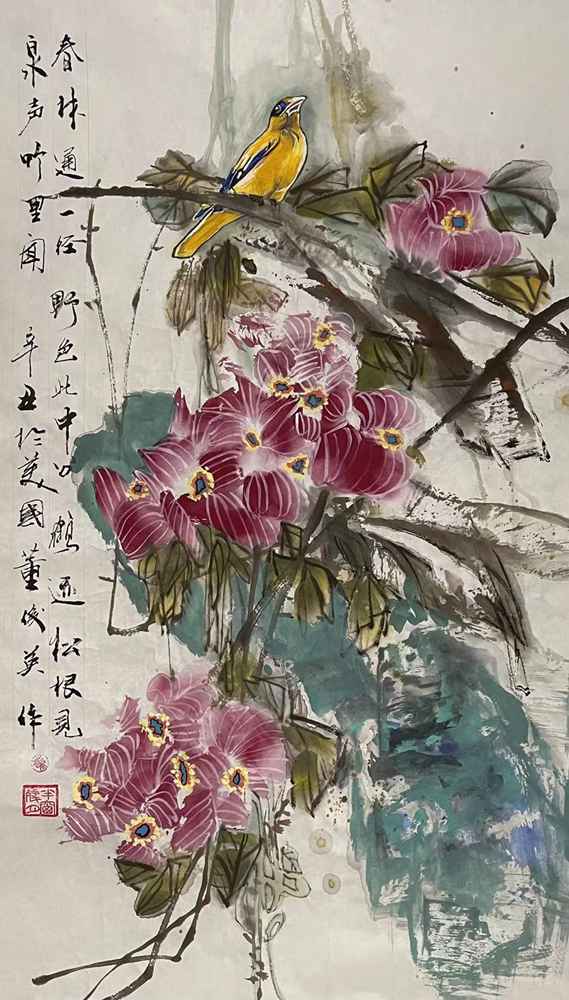 春林通一径 野色此中分 鹤迹松根見
泉声竹里闻 辛丑於美國董俊英作